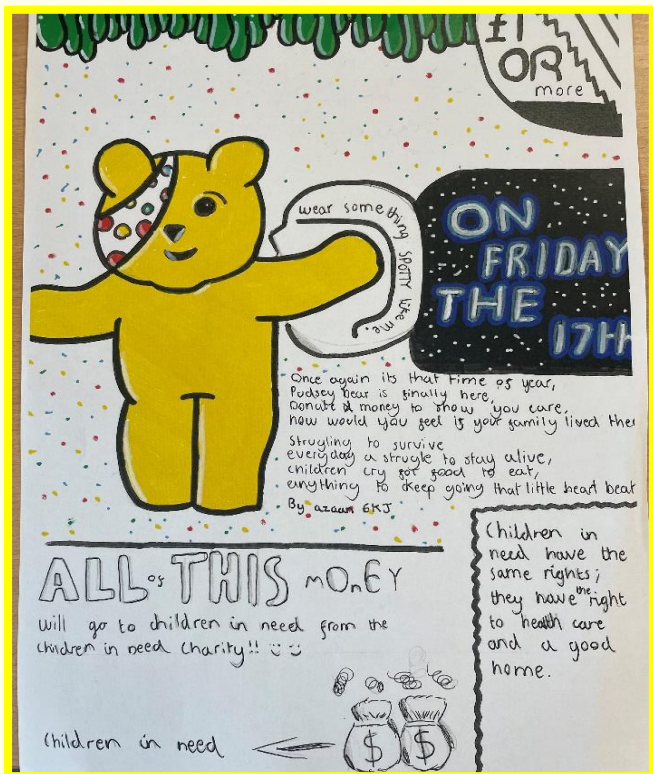 £1
OR
more
wear something SPOTTY like me.
ON
FRIDAY
THE
17th
Once again its that time of year,
Pudsey bear is finally here,
Donate money to show you care,
how would you feel if your family lived
Strugling to survive
everyday a strugle to stay alive,
children cry for food to eat,
anything to keep going that little heart beat
By azaan 6KJ
ALL of THIS mOnEY
will go to children in need from the
children in need charity!!
children in need
$ $
Children in
need have the
same rights;
they have the right
to health care
and a good
home.